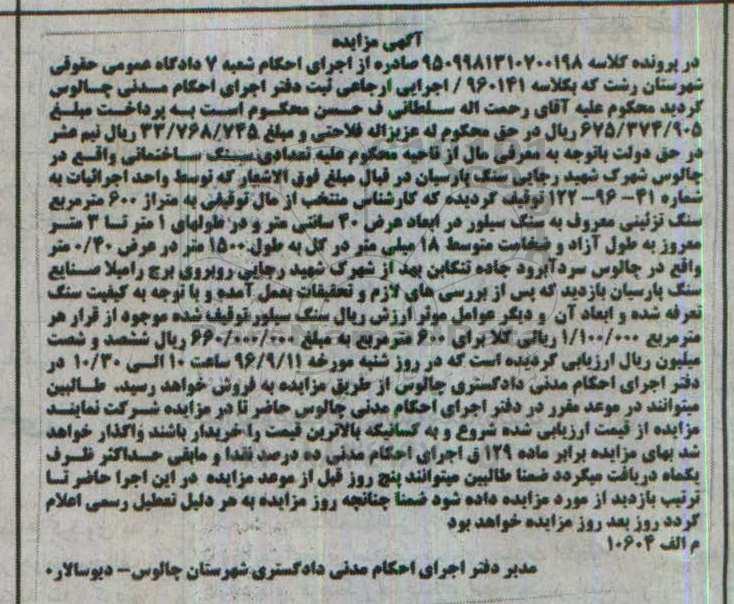 آگهی مزایده
در پرونده کلاسه ۹۵۰۹۹۸۱۳۱۰۷۰۰۱۹۸ صادره از اجرای احکام شعبه ۷ دادگاه عمومی حقوقی
شهرستان رشت که بکلاسه ۹۶۰۱۴۱ / اجرایی ارجاعی ثبت دفتر اجرای احکام مدنی چالوس
گردید محکوم علیه آقای رحمت اله سلطانی ف حسن محکوم است به پرداخت مبلغ
۶۷۵/۳۷۴/۹۰۵ ریال در حق محکوم له عزیزاله فلاحتی و مبلغ ۳۳/۷۶۸/۷۴۵ ریال نیم عشر
در حق دولت باتوجه به معرفی مال از ناحیه محکوم علیه تعدادی سنگ ساختمانی واقع در
چالوس شهرک شهید رجایی سنگ پارسیان در قبال مبلغ فوق الاشعار که توسط واحد اجرائیات به
شماره ۴۱- ۹۶- ۱۲۲ توقیف گردیده که کارشناس منتخب از مال توقیفی به متراژ ۶۰۰ مترمربع
سنگ تزئینی معروف به سنگ سیلور در ابعاد عرض ۴۰ سانتی متر و در طولهای ۱ متر تا ۳ متر
معروز به طول آزاد و ضخامت متوسط ۱۸ میلی متر در کل به طول ۱۵۰۰ متر در عرض ۰/۴۰ متر
واقع در چالوس سردآبرود جاده تنکابن بعد از شهرک شهید رجایی روبروی برج رامیلا صنایع
سنگ پارسیان بازدید که پس از بررسی های لازم و تحقیقات بعمل آمده و با توجه به کیفیت سنگ
تعرفه شده و ابعاد آن و دیگر عوامل موثر ارزش ریال سنگ سیلور توقیف شده موجود از قرار هر
مترمربع ۱/۱۰۰/۰۰۰ ریالی کلا برای ۶۰۰ مترمربع به مبلغ ۶۶۰/۰۰۰/۰۰۰ ریال ششصد و شصت
میلیون ریال ارزیابی گردیده است که در روز شنبه مورخه ۹۶/۹/۱۱ ساعت ۱۰ الی ۱۰/۳۰ در
دفتر اجرای احکام مدنی دادگستری چالوس از طریق مزایده به فروش خواهد رسید. طالبین
میتوانند در موعد مقرر در دفتر اجرای احکام مدنی چالوس حاضر تا در مزایده شرکت نمایند
مزایده از قیمت ارزیابی شده شروع و به کسانیکه بالاترین قیمت را خریدار باشند واگذار خواهد
شد بهای مزایده برابر ماده ۱۲۹ ق اجرای احکام مدنی ده درصد نقدا و مابقی حداکثر ظرف
یکماه دریافت میگردد ضمنا طالبین میتوانند پنج روز قبل از موعد مزایده در این اجرا حاضر تا
ترتیب بازدید از مورد مزایده داده شود ضمناً چنانچه روز مزایده به هر دلیل تعطیل رسمی اعلام
گردد روز بعد روز مزایده خواهد بود
م الف ۱۰۶۰۴
مدیر دفتر اجرای احکام مدنی دادگستری شهرستان چالوس- دیوسالار۰